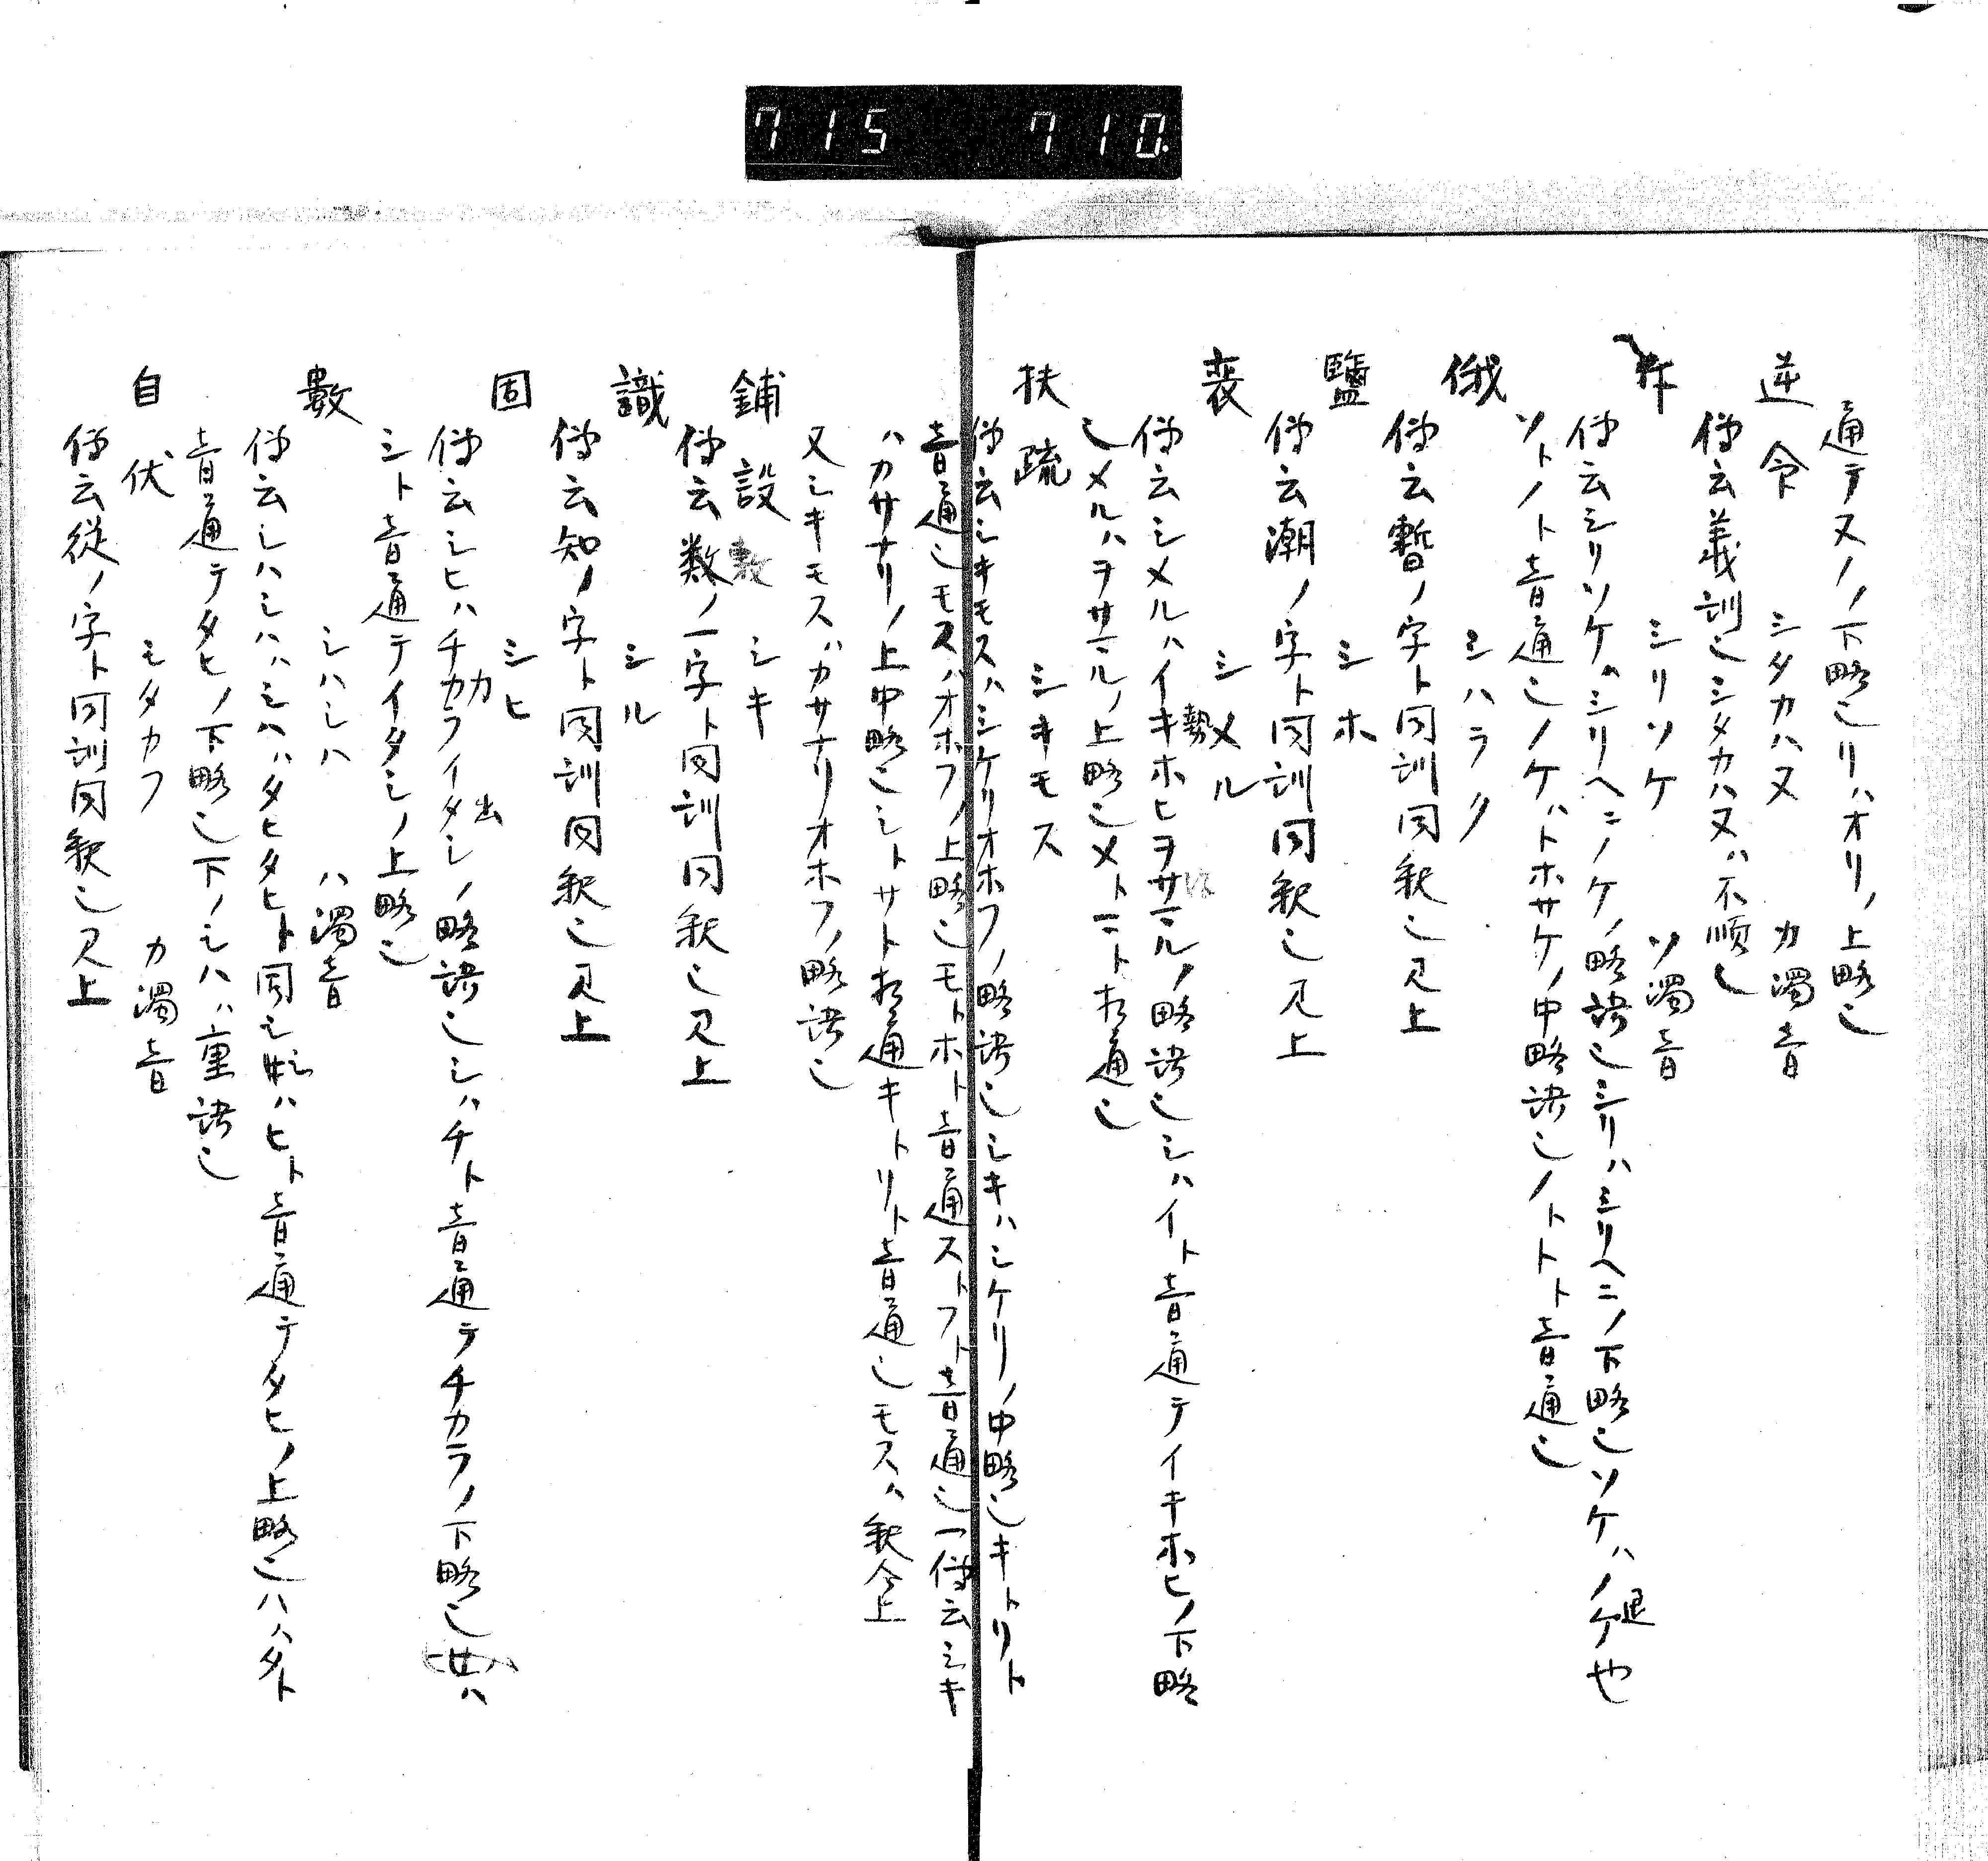 715 710
通テヌノ下略也リハオリノ上略也
逆令 シタカハヌ カ濁音
傳云義訓也シタカハヌハ不順也
シリソケ ソ濁音
傳云シリソケハシリヘニノケノ略語也シリハシリヘニノ下略也ソケハノケ退也
ソトノト音通也ノケハトホサケノ中略語也ノトト音通也
俄 シハラク
傳云暫ノ字ト同訓同釈也見上
鹽 シホ
傳云潮ノ字ト同訓同釈也見上
喪 シメル
傳云シメルハイキホヒ勢ヲサマルノ略語也シハイト音通テイキホヒノ下略
也メルハヲサマルノ上略也メトマト相通也
扶疏 シキモス
傳云シキモスハシケリオホフノ略語也シキハシケリノ中略也キトリト
音通也モスハオホフノ上略也モトホト音通ストフト音通也一傳云シキ
ハカサナリノ上中略也シトサト相通キトリト音通也モスハ釈全上
又シキモスハカサナリオホフノ略語也
鋪設 シキ
傳云敷ノ一字ト同訓同釈也見上
識 シル
傳云知ノ字ト同訓同釈也見上
固 シヒ
傳云シヒハチカラ力イタシ出ノ略語也シハチト音通テチカラノ下略也ヒハ
シト音通テイタシノ上略也
數 シハシハ ハ濁音
傳云シハシハハシハハタヒタヒト同シ也シハヒト音通テタヒノ上略也ハハタト
音通テタヒノ下略也下ノシハハ重語也
自伏 シタカフ カ濁音
傳云從ノ字ト同訓同釈也見上